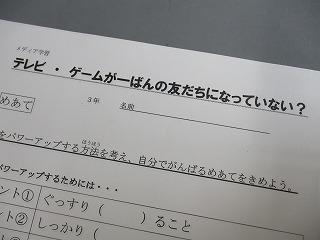 メディア学習
テレビ・ゲームが一ばんの友だちになっていない？
3年 名前
めあて
ほうほう
をパワーアップする方法を考え、自分でがんばるめあてをきめよう。
パワーアップするためには・・・
ント① ぐっすり（ ）ること
ント② しっかり（